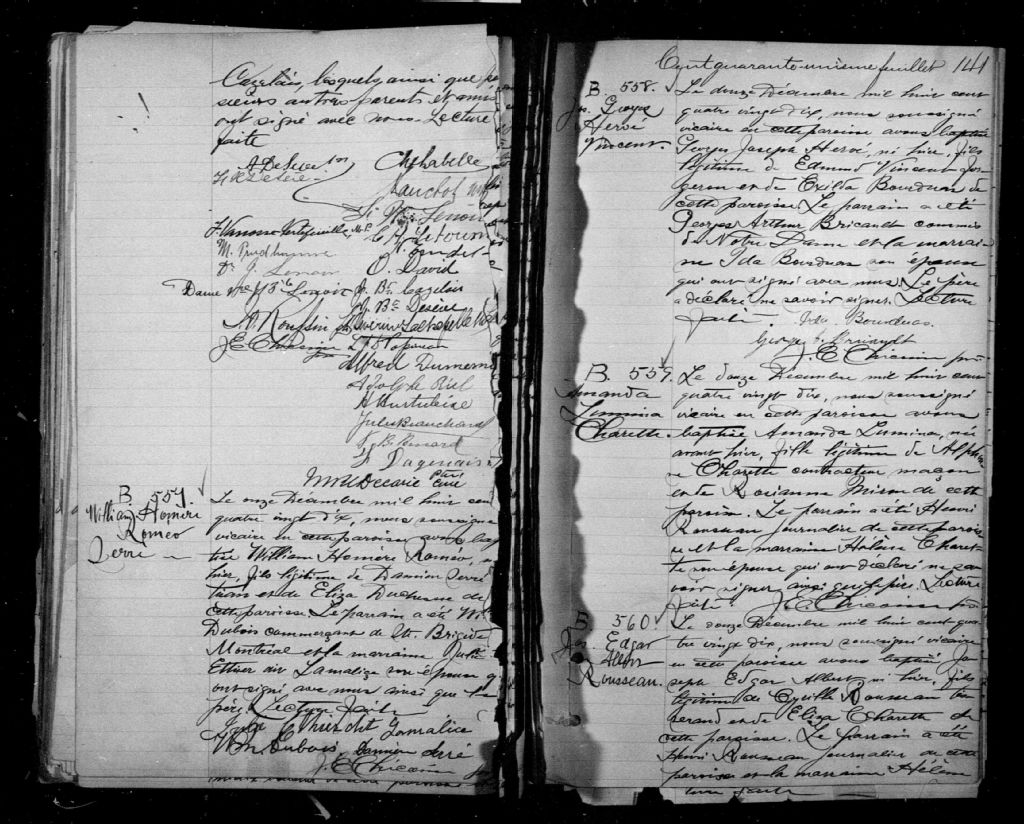 lesquels, ainsi que
sieurs autres parents et amis
ont signé avec nous. Lecture
faite
Chs Labelle
J. Vanasse Vertefeuille, M.P.
M. Prudhomme
C. Letourn
Dr. J. Lenoir
O. David
Dame
Bte Deseve
J. E. Chicoine
Alfred Dumesni
Adolphe Riel
A. Hurtubise
Jules Beauchamp
J. B. Renard
Dagenais
Decarie Ptre
Curé
B. 557.
William Homere
Romeo
Serré
Le onze Décembre mil huit cent
quatre vingt dix, nous soussigné
vicaire en cette paroisse avons bap
tisé William Homère Roméo, né
hier, fils légitime de Damien Serré
et de Eliza Duchesne de
cette paroisse. Le parrain a été
Dubois commerçant de St. Brigide
Montréal et la marraine
dit Lamalice son épouse q
ont signé avec nous ainsi que le
père. Lecture faite
Lamalice
Dubois, Damien Serré
J. E. Chicoine
Cent quarante-unième feuillet 141
B. 558.
Jos. Georges
Hervé
Vincent.
Le douze Décembre mil huit cent
quatre vingt dix, nous soussigné
vicaire en cette paroisse avons baptisé
Georges Joseph Hervé, né hier, fils
légitime de Edmond Vincent for
geron et de Exilda Bourdeau de
cette paroisse. Le parrain a été
Georges Arthur Bricault commis
de Notre Dame et la marrai
ne Ida Bourdeau son épouse
qui ont signé avec nous. Le père
a déclaré ne savoir signer. Lecture
faite. Ida Bourdeau.
J. E. Chicoine ptre
B. 559.
Amanda
Lumina
Charette
Le douze Décembre mil huit cent
quatre vingt dix, nous soussigné
vicaire en cette paroisse avons
baptisé Amanda Lumina, née
avant hier, fille légitime de Alphon
se Charette contracteur maçon
et de Rosianne Miron de cette
paroisse. Le parrain a été Henri
Rousseau journalier de cette parois
se et la marraine Hélène Charet
te son épouse qui ont déclaré ne sa
voir signer ainsi que le père. Lecture
faite. J. E. Chicoine ptre
B. 560.
Jos. Edgar
Albert
Rousseau.
Le douze Décembre mil huit cent qua
tre vingt dix, nous soussigné vicaire
en cette paroisse avons baptisé Jo
seph Edgar Albert né hier, fils
légitime de Cyrille Rousseau tis
serand et de Eliza Charette de
cette paroisse. Le parrain a été
Henri Rousseau journalier de cette
paroisse et la marraine Hélène